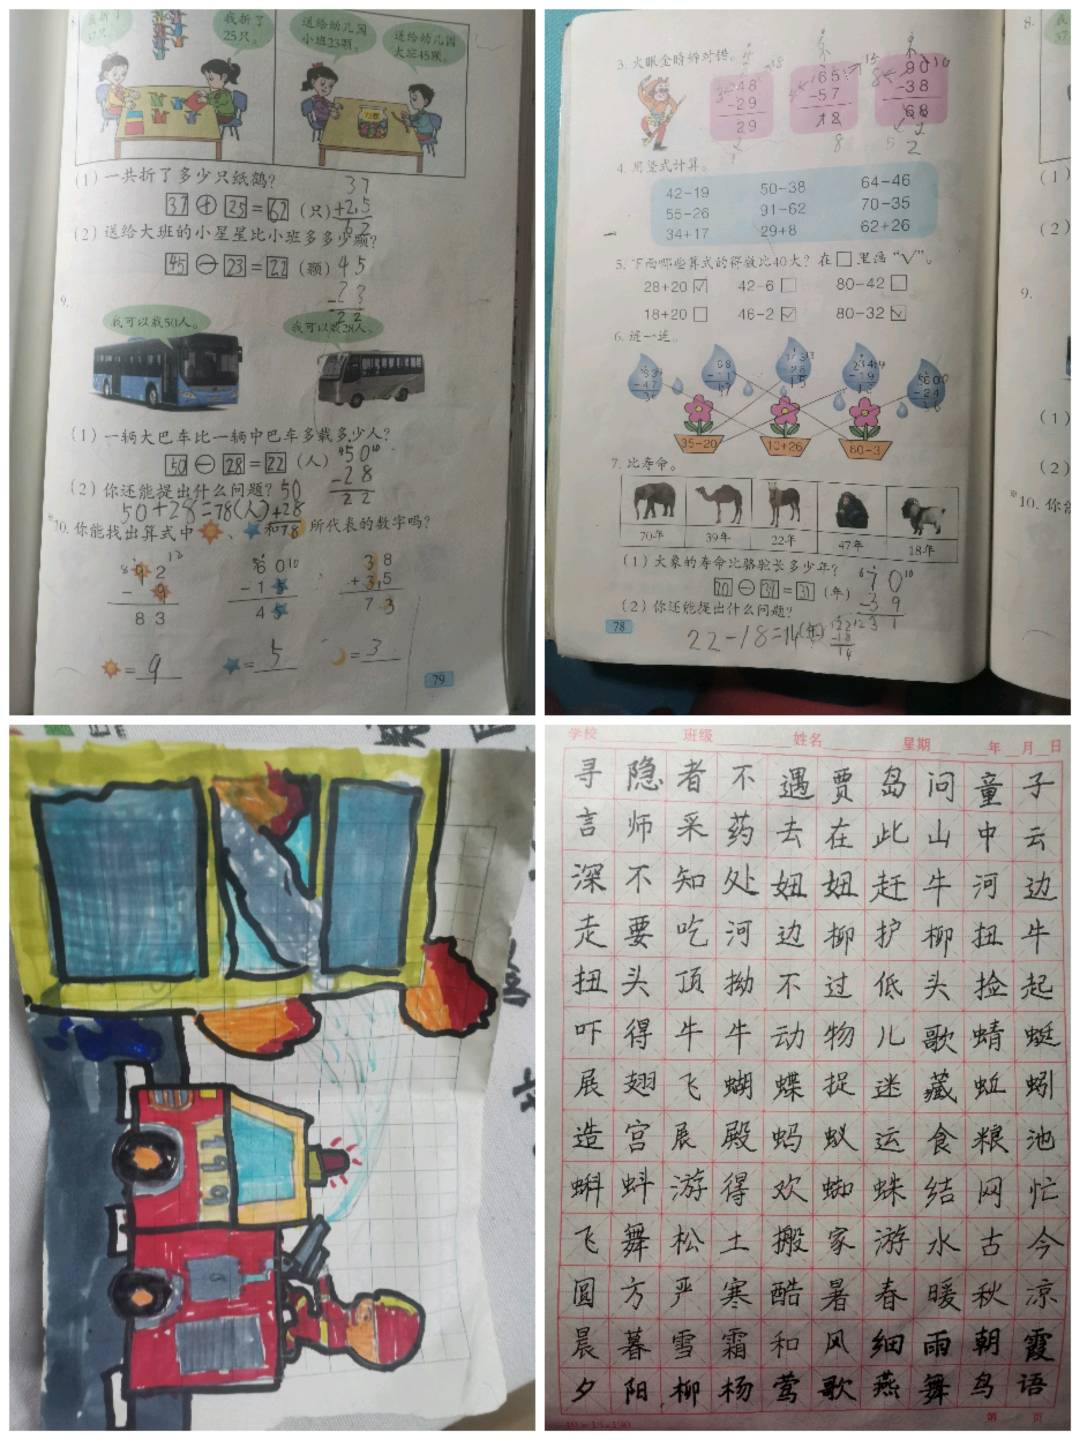 我折了
37只。
我折了
25只。
送给幼儿园
小班23颗。
送给幼儿园
大班45颗。
(1)一共折了多少只纸鹤?
37 + 25 = 62 (只)
37
+25
62
(2)送给大班的小星星比小班多多少颗?
45 - 23 = 22 (颗)
45
-23
22
9.
我可以载50人。
我可以载28人。
(1)一辆大巴车比一辆中巴车多载多少人?
50 - 28 = 22 (人)
50
-28
22
(2)你还能提出什么问题?
50+28=78(人)
50
+28
78
*10.你能找出算式中 、 和 所代表的数字吗?
8 3
6 0
-1 5
4 5
3 8
+3 5
7 3
= 9
= 5
= 3
79
3.火眼金睛辨对错。
48
-29
29
65
-57
18
8
90
-38
68
4.用竖式计算。
42-19 50-38 64-46
55-26 91-62 70-35
34+17 29+8 62+26
5.下面哪些算式的得数比40大?在□里画“√”。
28+20 ☑ 42-6 □ 80-42 □
18+20 □ 46-2 ☑ 80-32 ☑
6.连一连。
35-20 10+26 60-3
7.比寿命。
70年 39年 22年 47年 18年
(1)大象的寿命比骆驼长多少年?
70 - 39 = 31 (年)
70
-39
31
(2)你还能提出什么问题?
22-18=14(年)
78
8.
(1)
(2)
9.
(1)
(2)
*10.
学校 班级 姓名 星期 年 月 日
寻隐者不遇贾岛问童子
言师采药去在此山中云
深不知处妞妞赶牛河边
走要吃河边柳护柳扭牛
扭头顶拗不过低头捡起
吓得牛牛动物儿歌蜻蜓
展翅飞蝴蝶捉迷藏蚯蚓
造宫展殿蚂蚁运食粮池
蝌蚪游得欢蜘蛛结网忙
飞舞松土搬家游水古今
圆方严寒酷暑春暖秋凉
晨暮雪霜和风细雨朝霞
夕阳柳杨莺歌燕舞鸟语
第 页